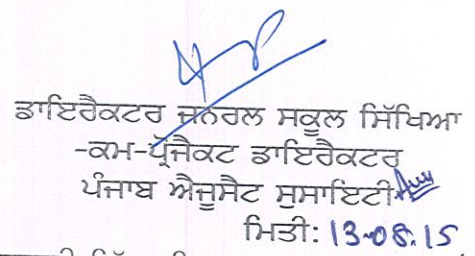 ਡਾਇਰੈਕਟਰ ਜਨਰਲ ਸਕੂਲ ਸਿੱਖਿਆ
-ਕਮ-ਪ੍ਰੋਜੈਕਟ ਡਾਇਰੈਕਟਰ
ਪੰਜਾਬ ਐਜੂਸੈਟ ਸੁਸਾਇਟੀ
ਮਿਤੀ: 13-08.15